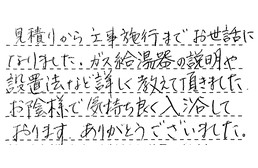 見積りから工事施行までお世話に
なりました。ガス給湯器の説明や
設置法など詳しく教えて頂きました
お陰様で気持ち良く入浴して
おります。ありがとうございました。